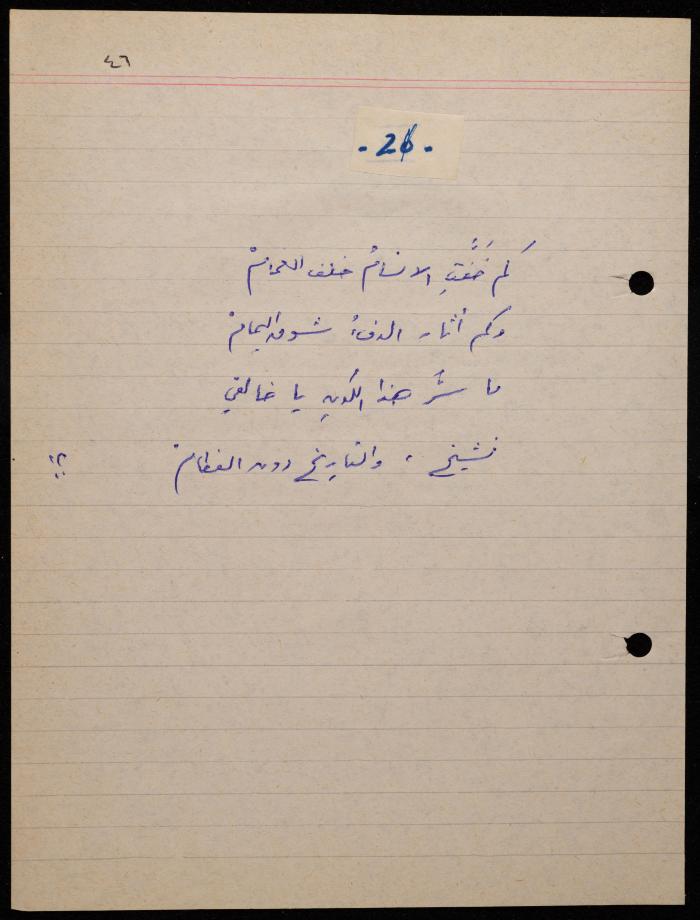 ٤٦
- 26 -
كم خفّفت الانسامُ خلف الغمامْ
وكم أثار الدفءُ شوق اليمامْ
ما سرُّ هذا الكون يا خالقي
نشيخ ، والتاريخ دون الفطامْ ؟!